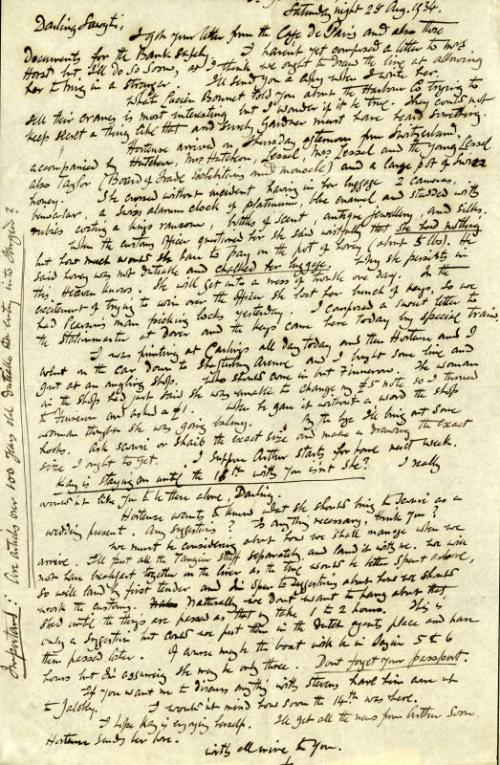 Saturday night 28 Aug. 1934.
Darling
I got your letter from the Cafe de Paris and also those
Documents for the Bank safely. I havent yet composed a letter to Mrs.
Horst but I'll do so soon, as I think we ought to draw the line at allowing
her to bring in a stranger. I'll send you a copy when I write her.
What Lucien Bonnet told you about the Harbour Co trying to
sell their cranes is most interesting but I wonder if it be true. They could not
keep secret a thing like that and surely Gardner must have heard something.
Hortense arrived on Thursday afternoon from Switzerland,
accompanied by Hutcheon, Mrs Hutcheon, Lessel, Mrs Lessel and the young Lessel
also Taylor (Board of Trade Exhibitions and monocle) and a large pot of Swiss
honey. She crossed without incident having in her luggage 2 cameras,
binocular, a Swiss alarum clock of platinum, blue enamel and studded with
rubies costing a kings ransom, bottles of scent, antique jewellery, and silks.
When the customs officer questioned her she said wistfully that she had nothing
but how much would she have to pay on the pot of honey (about 5 lbs). He
said honey was not dutiable and chalked her luggage. Why she persists in
this Heaven knows. She will get into a mess of trouble one day. In the
excitement of trying to win over the officer she lost her bunch of keys, so we
had Pearsons man picking locks yesterday. I composed a sweet letter to
the Stationmaster at Dover and the keys came here today by special train.
I was printing at Carlings all day today and then Hortense and I
went in the car down to Shaftesbury Avenue and I bought some line and
gut at an angling shop. Who should come in but Zimmern. The woman
in the shop had just said she was unable to change my £5 note so I turned
to Zimmern and asked a £1. When he gave it without a word the shop
woman thought she was going balmy. By the bye I'll bring out some
hooks. Ask or the exact size and make a drawing the exact
size I ought to get. I suppose Arthur starts for home next week.
Kay is staying on until the 18th with you isnt she? I really
wouldnt like you to be there alone, Darling.
Hortense wants to know what she should bring to as a
wedding present. Any suggestions? Is anything necessary, think you?
We must be considering about how we shall manage when we
arrive. I'll put all the Tangier stuff separately and land it with me. We will
not have breakfast together in the liner as the time would be better spent ashore,
so we'll land by first tender and I'm open to suggestions about how we should
work the customs. Naturally we dont want to hang about that
shed until the things are passed as that may take 1 to 2 hours. This is
only a suggestion but could we put them in the Dutch agents place and have
them passed later. I was maybe the boat with be in Tangier 5 to 6
hours but I'm assuming she may be only three. Don't forget your passport.
If you want me to discuss anything with Stevens have him come up
to Jalobey. I wouldn't mind how soon the 14th was here.
I hope Kay is enjoying herself. I'll get all the news from Arthur soon.
Hortense sends her love.
With all mine to you.
Important: Are articles over 100 years old dutiable on entry into Tangier?